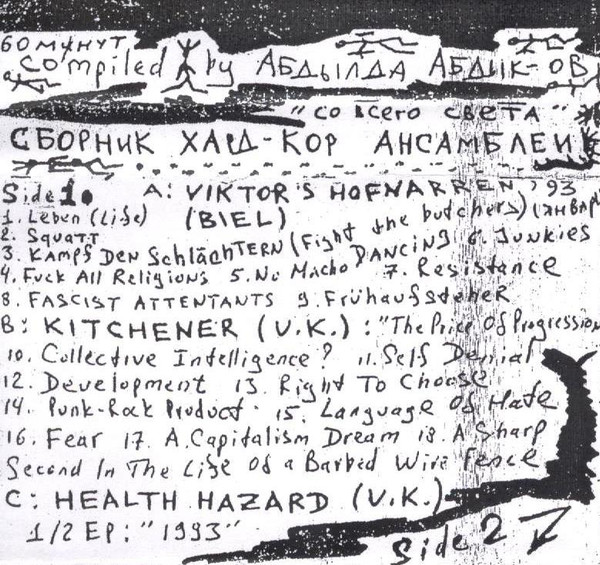 60 минут
compiled by АБДЫЛДА АБДЫК-ОВ
"СО ВСЕГО СВЕТА"
СБОРНИК ХАРД-КОР АНСАМБЛЕЙ
Side 1. A: VIKTOR'S HOFNARREN, '93
1. Leben (Life) (BIEL) (январь)
2. Squatt
3. KAMPF DEN SCHLÄCHTERN (Fight the butchers)
4. Fuck All Religions 5. No Macho DANCING 6. Junkies
7. Resistance
8. FASCIST ATTENTANTS 9. Frühaufsteher
B: KITCHENER (U.K.): "The Price Of Progression
10. Collective Intelligence? 11. Self Denial
12. Development 13. Right To Choose
14. Punk-Rock Product 15. Language Of Hate
16. Fear 17. A Capitalism Dream 18. A Sharp
Second In The Life Of a Barbed Wire Fence
C: HEALTH HAZARD (U.K.)
1/2 EP: "1993"
Side 2